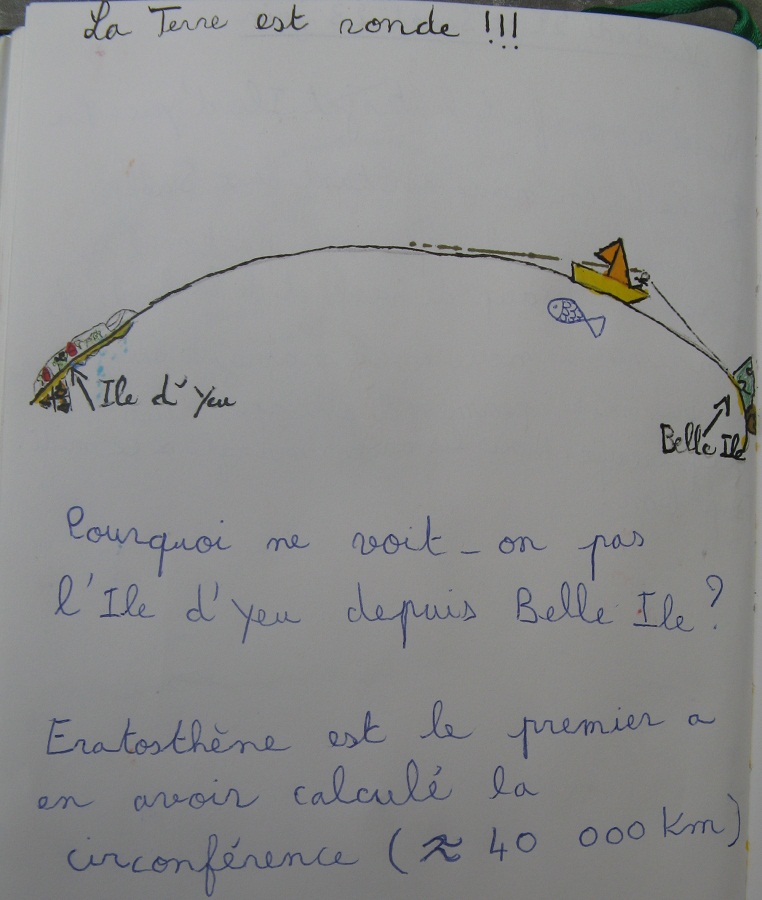 La Terre est ronde !!!
Ile d'Yeu
Belle Ile
Pourquoi ne voit-on pas
l'Ile d'Yeu depuis Belle Ile ?
Eratosthène est le premier a
en avoir calculé la
circonférence (≈ 40 000 Km)